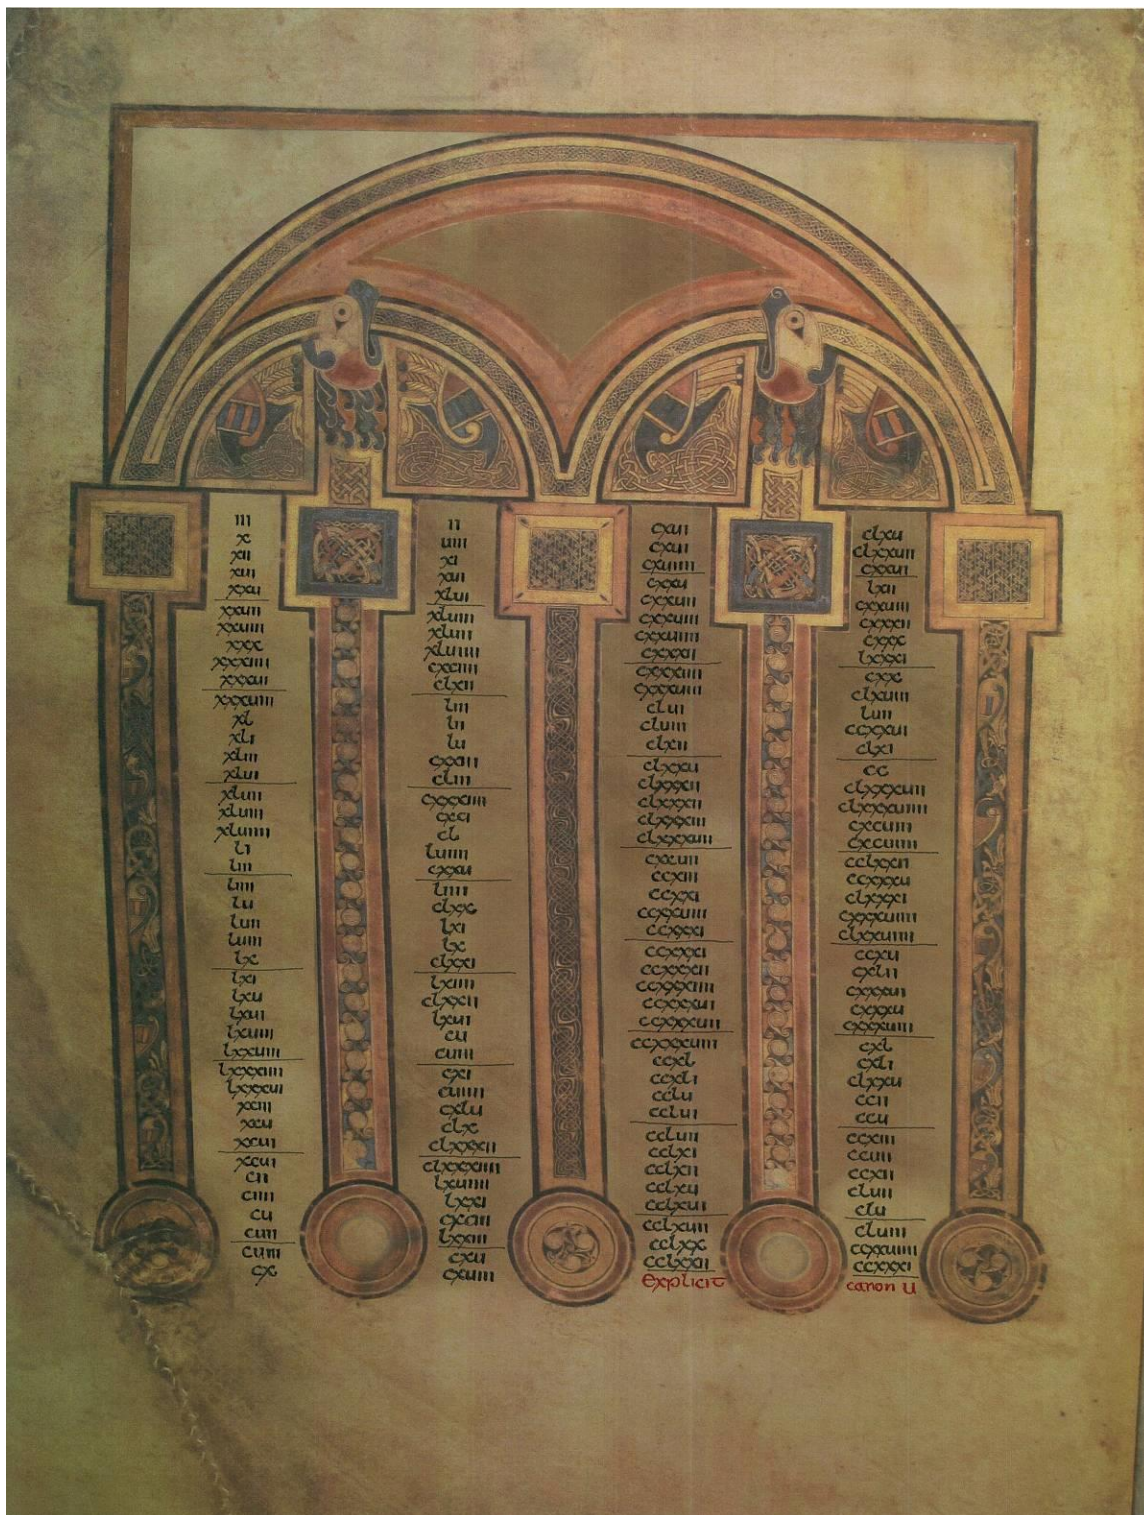 iii
x
xii
xui
xxu
xxuii
xxuiii
xxx
xxxiiii
xxxui
xxxuiii
xl
xli
xliii
xlui
xluii
xluiii
xluiiii
li
liii
liiii
lu
luii
luiii
lx
lxi
lxu
lxui
lxuiii
lxxuiii
lxxxiiii
lxxxui
xciii
xcu
xcui
xcui
cii
ciiii
cu
cuii
cuiii
cx
ii
uiii
xi
xui
xlui
xluiii
xluii
xluiiii
cxciiii
clxii
liii
lii
lu
cxxiii
cliii
cxxxiiii
cxci
cl
luiiii
cxxu
liiii
clxx
lxi
lx
clxxi
lxiiii
clxxii
lxui
cu
cuiii
cxi
cuiiii
cxlu
clx
clxxxii
clxxxiiii
lxuiiii
lxxi
cxciii
lxxiii
cxu
cxuiii
cxuii
cxuii
cxuiiii
cxxu
cxxuii
cxxuiii
cxxuiiii
cxxxii
cxxxiiii
cxxxuiii
clui
cluiii
clxii
clxxu
clxxxii
clxxxii
clxxxiii
clxxxuii
cxcuii
ccxiii
ccxxi
ccxxuiii
ccxxxi
ccxxxi
ccxxxii
ccxxxiiii
ccxxxui
ccxxxuii
ccxxxuiii
ccxl
ccxli
cclu
cclui
ccluii
cclxi
cclxii
cclxu
cclxuii
cclxuiii
cclxx
cclxxii
explicit
clxu
clxxuii
cxxui
lxii
cxxuiii
cxxxii
cxxx
lxxxi
cxx
clxuiii
luii
ccxxui
clxi
cc
clxxxuii
clxxxuiiii
cxcuiii
cxcuiiii
cclxxii
ccxxxu
clxxxi
cxxxuiiii
clxxuiiii
ccxu
cxlii
cxxxui
cxxxu
cxxxuiii
cxl
cxli
clxxu
ccii
ccu
ccxiii
ccuii
ccxii
cluii
clu
cluiii
ccxxuiiii
ccxxxi
canon u